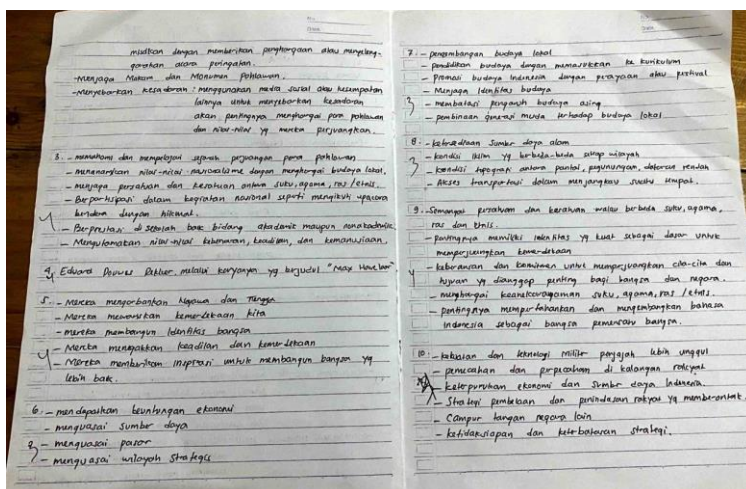 No.
Date
misalkan dengan memberikan penghargaan atau menyeleng-
garakan acara peringatan.
-Menjaga Makam dan Monumen Pahlawan.
-Menyebarkan kesadaran : menggunakan media sosial atau kesempatan
lainnya untuk menyebarkan kesadaran
akan pentingnya menghargai para pahlawan
dan nilai-nilai yg mereka perjuangkan.
3. - memahami dan mempelajari sejarah perjuangan para pahlawan
- Menanamkan nilai-nilai nasionalisme dengan menghargai budaya lokal.
- menjaga persatuan dan kesatuan antara suku, agama, ras / etnis.
- Berpartisipasi dalam kegiatan nasional seperti mengikuti upacara
bendera dengan hikmat.
- Berprestasi di sekolah baik bidang akademik maupun nonakademik.
- Mengutamakan nilai-nilai kebenaran, keadilan, dan kemanusiaan.
4. Eduard Douwes Dekker melalui karyanya yg berjudul "Max Havelaar"
5. - Mereka mengorbankan Nyawa dan
- Mereka mewariskan kemerdekaan kita
- mereka membangun identitas bangsa
- Mereka menegakkan keadilan dan kemerdekaan
- Mereka memberikan inspirasi untuk membangun bangsa yg
lebih baik.
6. - mendapatkan keuntungan ekonomi
- menguasai sumber daya
- menguasai pasar
- menguasai wilayah strategis
Date
7. - pengembangan budaya lokal
- pendidikan budaya dengan memasukkan ke kurikulum
- Promosi budaya Indonesia dengan perayaan atau festival
- Menjaga identitas budaya
- membatasi pengaruh budaya asing
- pembinaan generasi muda terhadap budaya lokal
8. - ketersediaan Sumber daya alam
- kondisi iklim yg berbeda-beda setiap wilayah
- kondisi topografi antara pantai, pegunungan, dataran rendah
- Akses transportasi dalam menjangkau suatu tempat.
9. - Semangat persatuan dan kesatuan walau berbeda suku, agama,
ras dan etnis.
- pentingnya memiliki identitas yg kuat sebagai dasar untuk
memperjuangkan kemerdekaan
- keberanian dan komitmen untuk memperjuangkan cita-cita dan
tujuan yg dianggap penting bagi bangsa dan negara.
- menghargai keanekaragaman suku, agama, ras / etnis.
- pentingnya mempertahankan dan mengembangkan bahasa
Indonesia sebagai bangsa pemersatu bangsa.
10. - kekuatan dan teknologi militer penjajah lebih unggul
- pemecahan dan perpecahan di kalangan rakyat
- keterpurukan ekonomi dan Sumber daya Indonesia.
- Strategi dan penindasan rakyat yg memberontak.
- Campur tangan negara lain
- ketidaksiapan dan keterbatasan strategi.